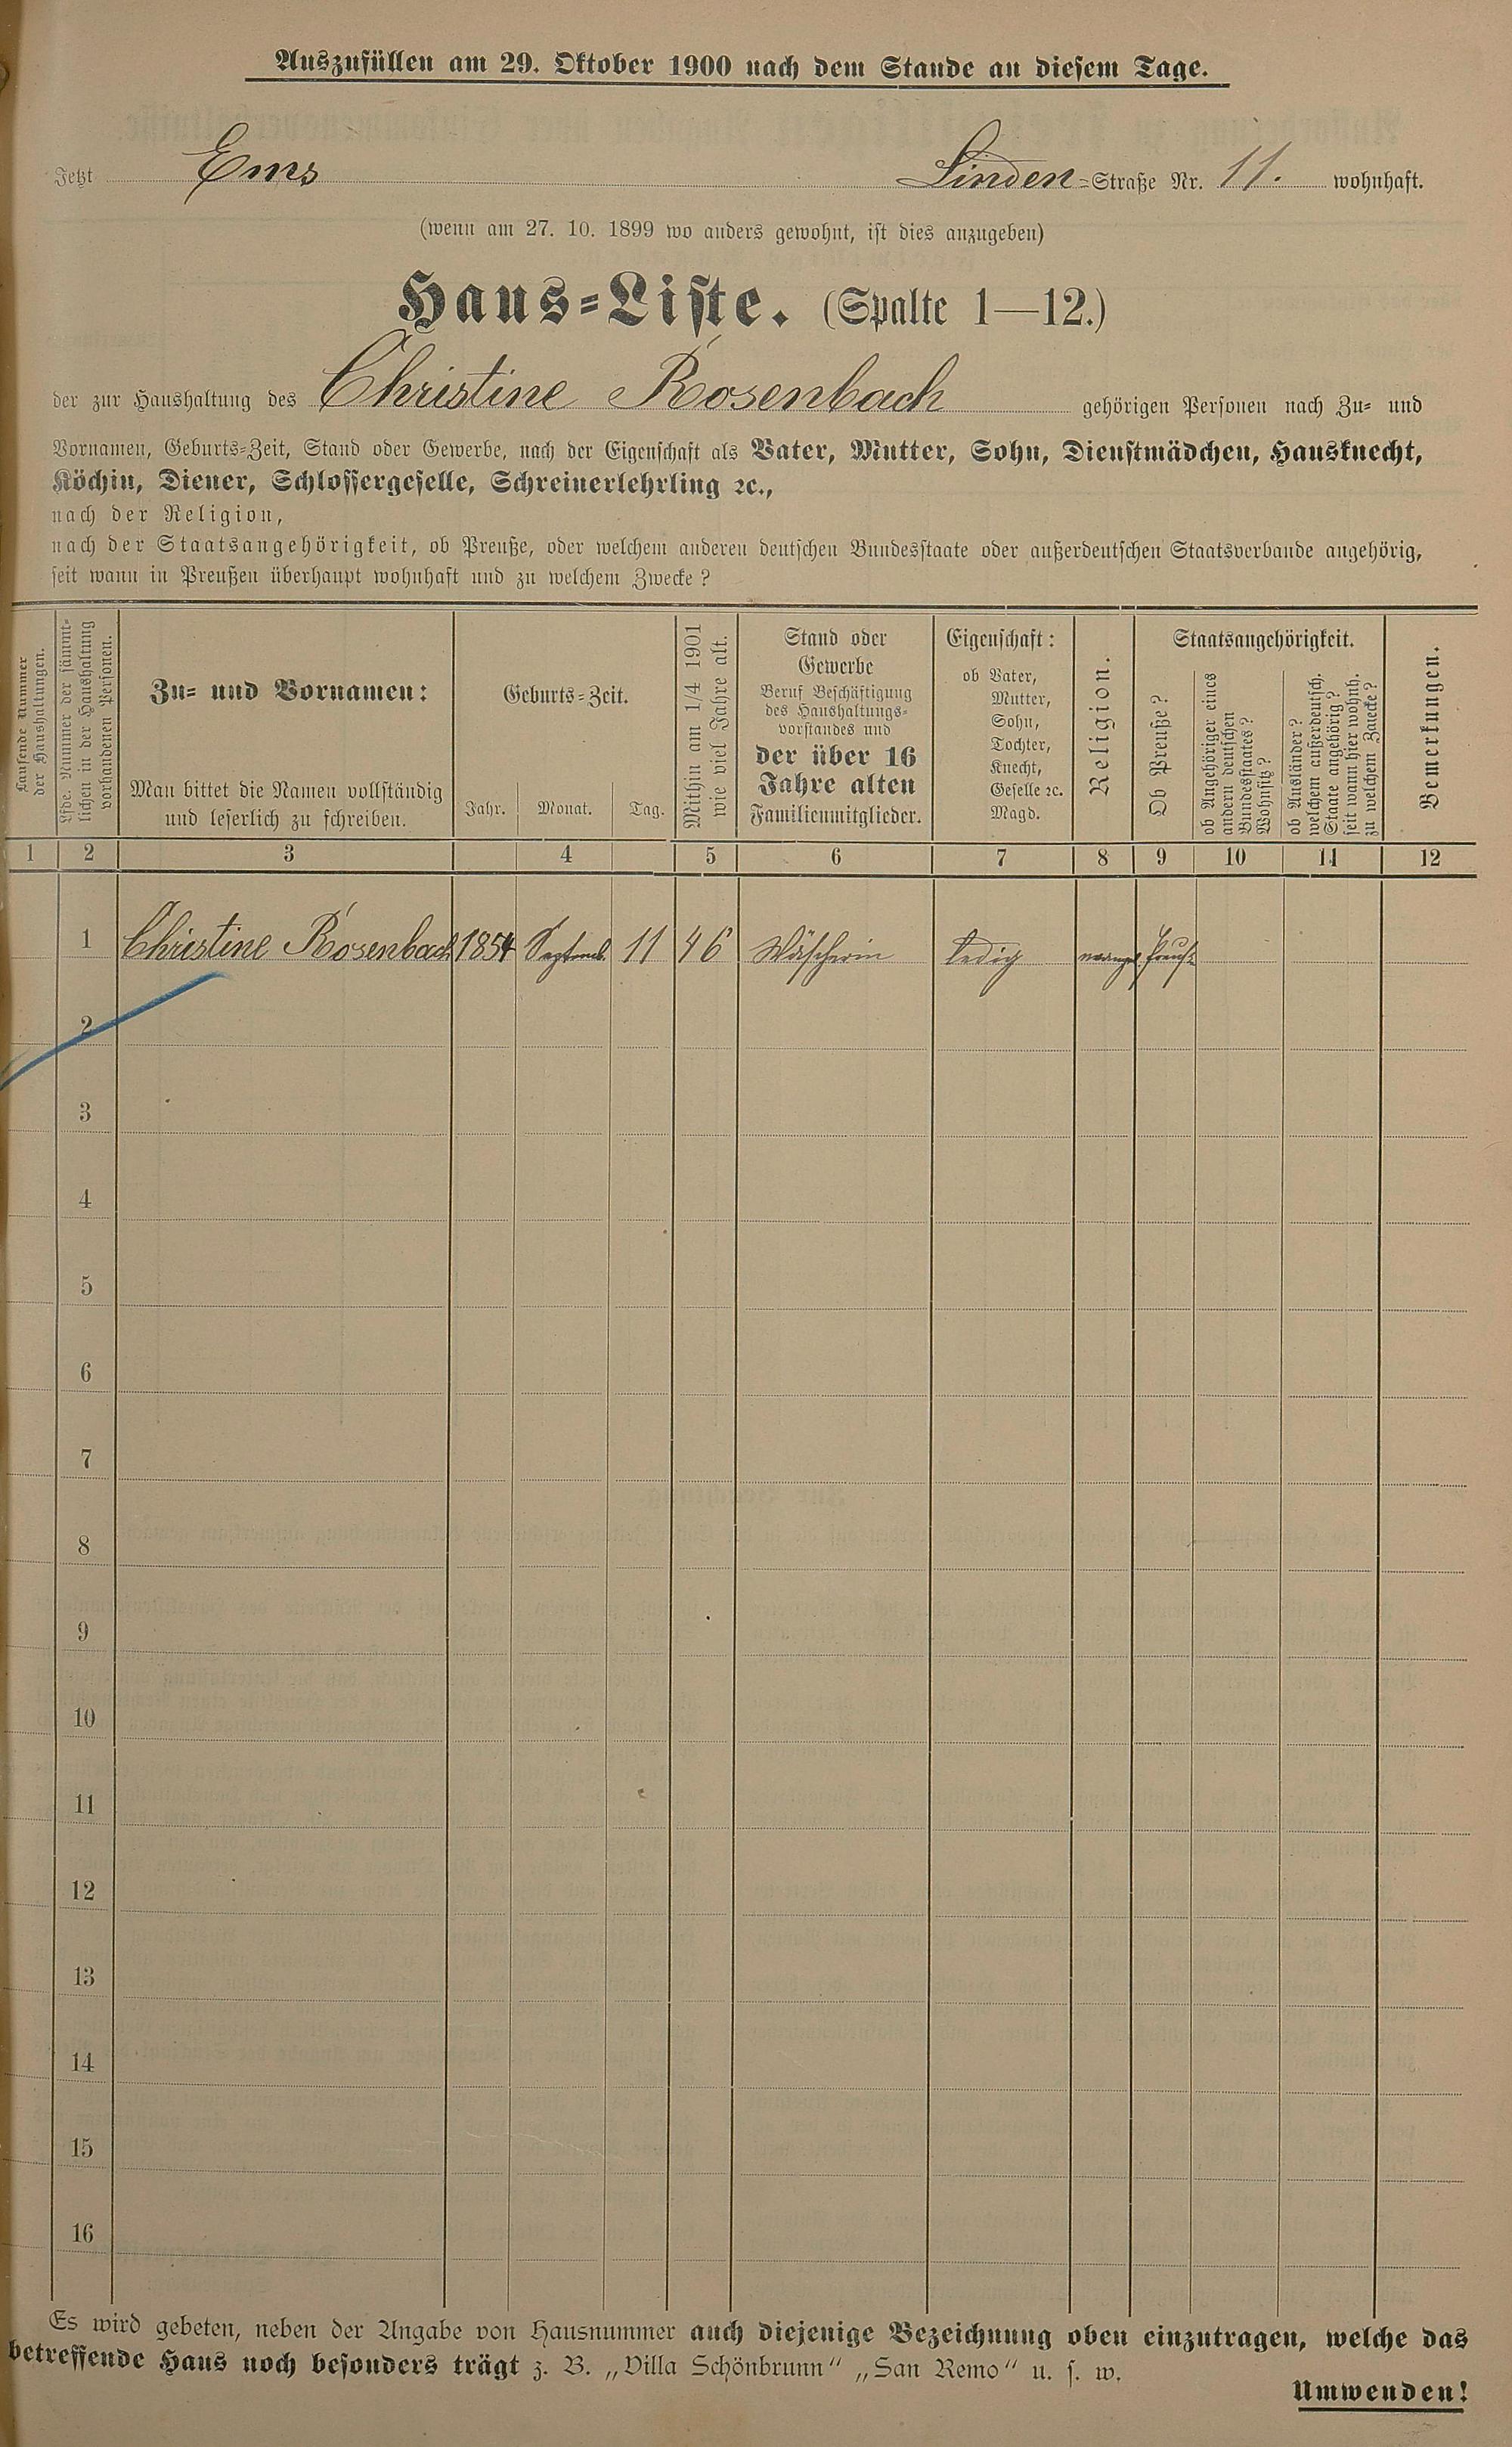 Auszufüllen am 29. Oktober 1900 nach dem Stande an diesem Tage.
Jetzt Ems Linden-Straße Nr. 11. wohnhaft.
(wenn am 27. 10. 1899 wo anders gewohnt, ist dies anzugeben)
Haus-Liste. (Spalte 1—12.)
der zur Haushaltung des Christine Rosenbach gehörigen Personen nach Zu- und
Vornamen, Geburts-Zeit, Stand oder Gewerbe, nach der Eigenschaft als Vater, Mutter, Sohn, Dienstmädchen, Hausknecht,
Köchin, Diener, Schlossergeselle, Schreinerlehrling ꝛc.,
nach der Religion,
nach der Staatsangehörigkeit, ob Preuße, oder welchem anderen deutschen Bundesstaate oder außerdeutschen Staatsverbande angehörig,
seit wann in Preußen überhaupt wohnhaft und zu welchem Zwecke?
Laufende Nummer
der Haushaltungen.
Lfde. Nummer der sämmt-
lichen in der Haushaltung
vorhandenen Personen.
Zu- und Vornamen:
Man bittet die Namen vollständig
und leserlich zu schreiben.
Geburts-Zeit.
Jahr. Monat. Tag.
Mithin am 1/4 1901
wie viel Jahre alt.
Stand oder
Gewerbe
Beruf Beschäftigung
des Haushaltungs-
vorstandes und
der über 16
Jahre alten
Familienmitglieder.
Eigenschaft:
ob Vater,
Mutter,
Sohn,
Tochter,
Knecht,
Geselle ꝛc.
Magd.
Religion.
Staatsangehörigkeit.
Ob Preuße?
ob Angehöriger eines
andern deutschen
Bundesstaates?
Wohnsitz?
ob Ausländer?
welchem außerdeutsch.
Staate angehörig?
seit wann hier wohnh.
zu welchem Zwecke?
Bemerkungen.
1 2 3 4 5 6 7 8 9 10 11 12
1 Christine Rosenbach 1854 Septemb. 11 46 Wäscherin ledig Preuße
2
3
4
5
6
7
8
9
10
11
12
13
14
15
16
Es wird gebeten, neben der Angabe von Hausnummer auch diejenige Bezeichnung oben einzutragen, welche das
betreffende Haus noch besonders trägt z. B. „Villa Schönbrunn" „San Remo" u. s. w.
Umwenden!